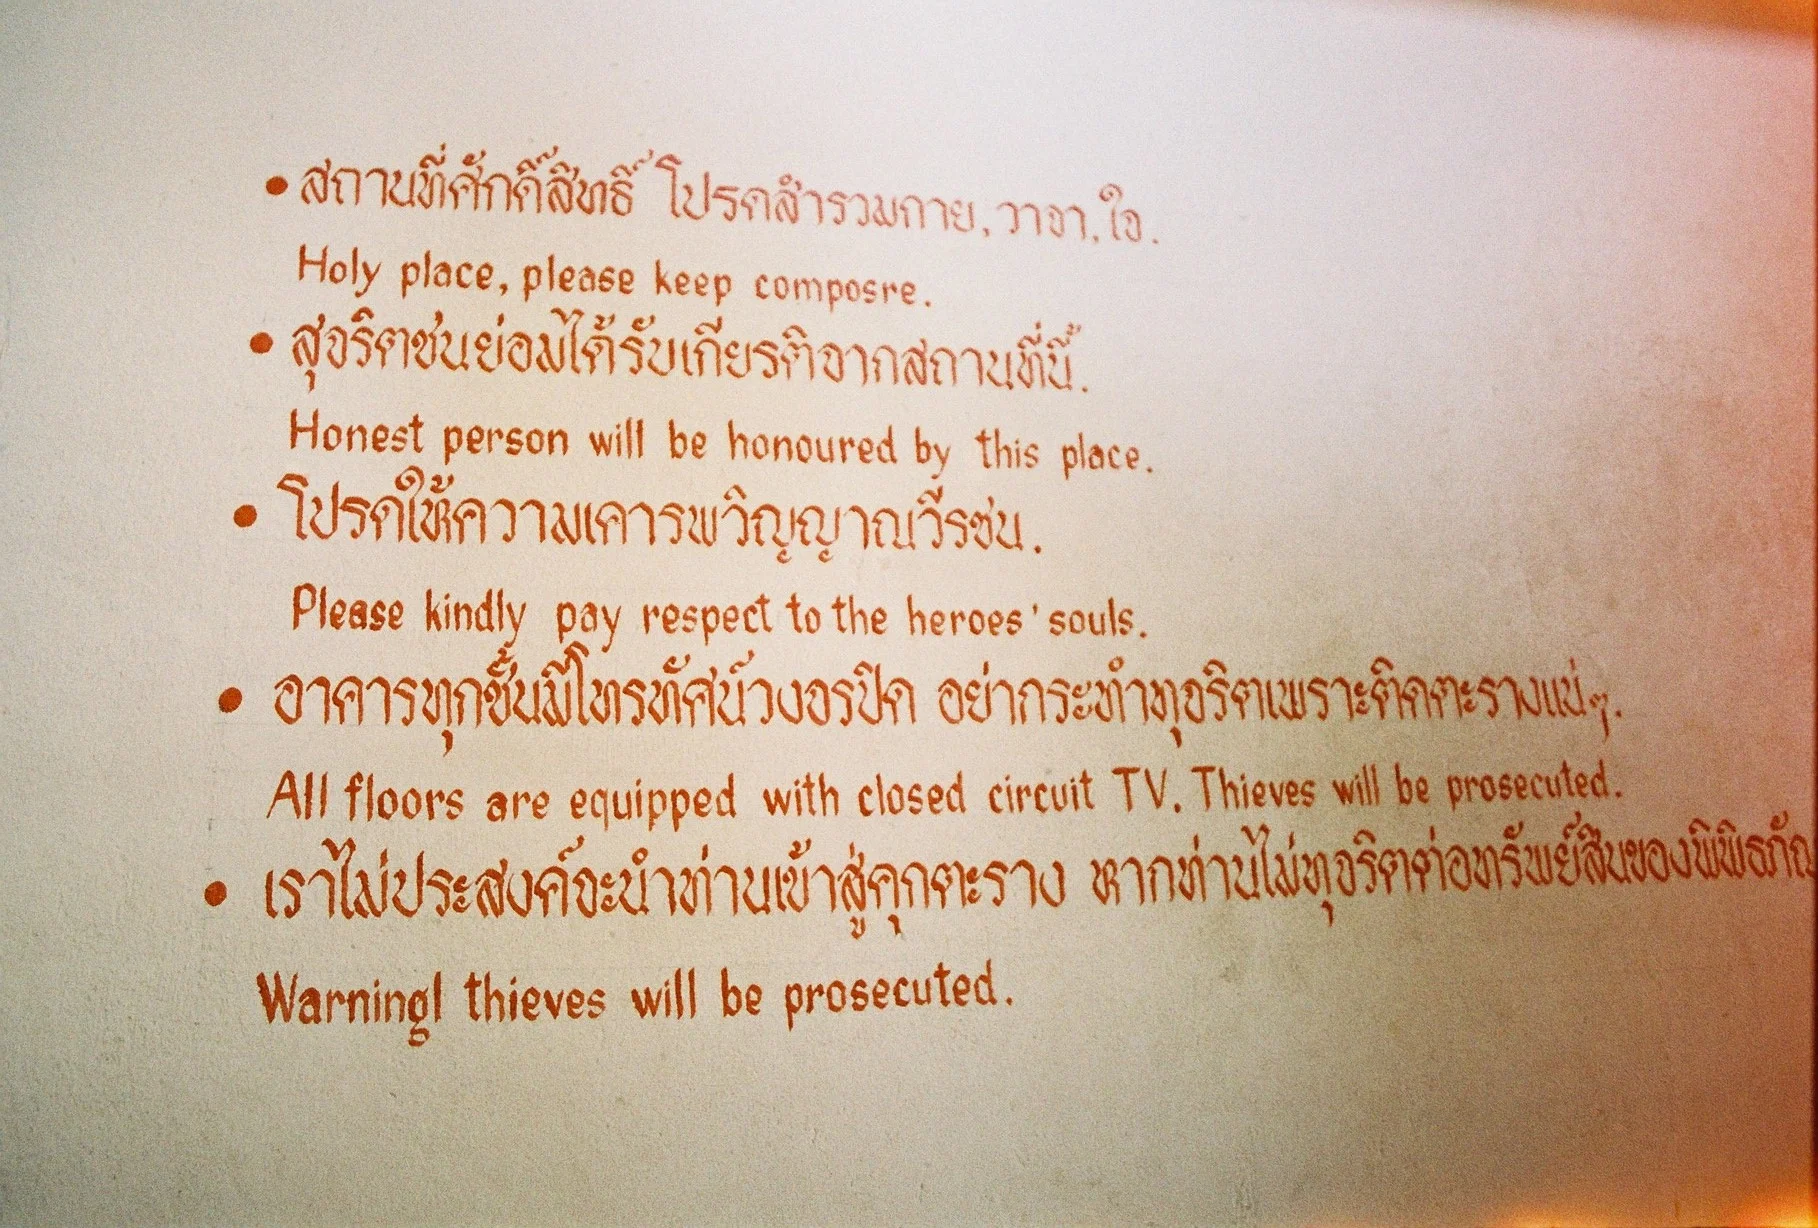 • สถานที่ศักดิ์สิทธิ์ โปรดสำรวมกาย, วาจา, ใจ.
Holy place, please keep composre.
• สุจริตชนย่อมได้รับเกียรติจากสถานที่นี้.
Honest person will be honoured by this place.
• โปรดให้ความเคารพวิญญาณวีรชน.
Please kindly pay respect to the heroes' souls.
• อาคารทุกชั้นมีโทรทัศน์วงจรปิด อย่ากระทำทุจริตเพราะติดตะรางแน่ๆ.
All floors are equipped with closed circuit TV. Thieves will be prosecuted.
• เราไม่ประสงค์จะนำท่านเข้าสู่คุกตะราง หากท่านไม่ทุจริตต่อทรัพย์สินของ
Warning! thieves will be prosecuted.